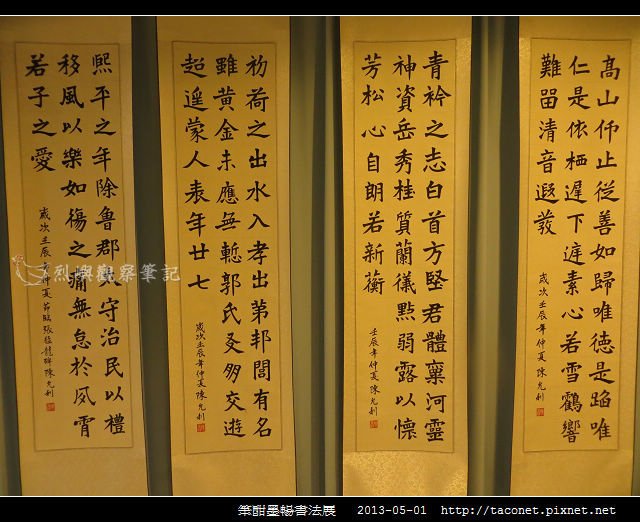 高山仰止從善如歸唯德是蹈唯
仁是依栖遲下庭素心若雪鶴響
難留清音遐發
歲次壬辰年仲夏陳允利
青衿之志白首方堅君體稟河靈
神資岳秀桂質蘭儀點弱露以懷
芳松心自朗若新蘅
壬辰年仲夏陳允利
初荷之出水入孝出第邦閭有名
雖黃金未應無慙郭氏友朋交遊
超遥蒙人表年廿七
歲次壬辰年仲夏陳允利
熙平之年除魯郡太守治民以禮
移風以樂如傷之痛無息於夙宵
若子之愛
歲次壬辰年仲夏節臨張猛龍碑陳允利
烈嶼觀察筆記
筆酣墨暢書法展 2013-05-01 http://taconet.pixnet.net